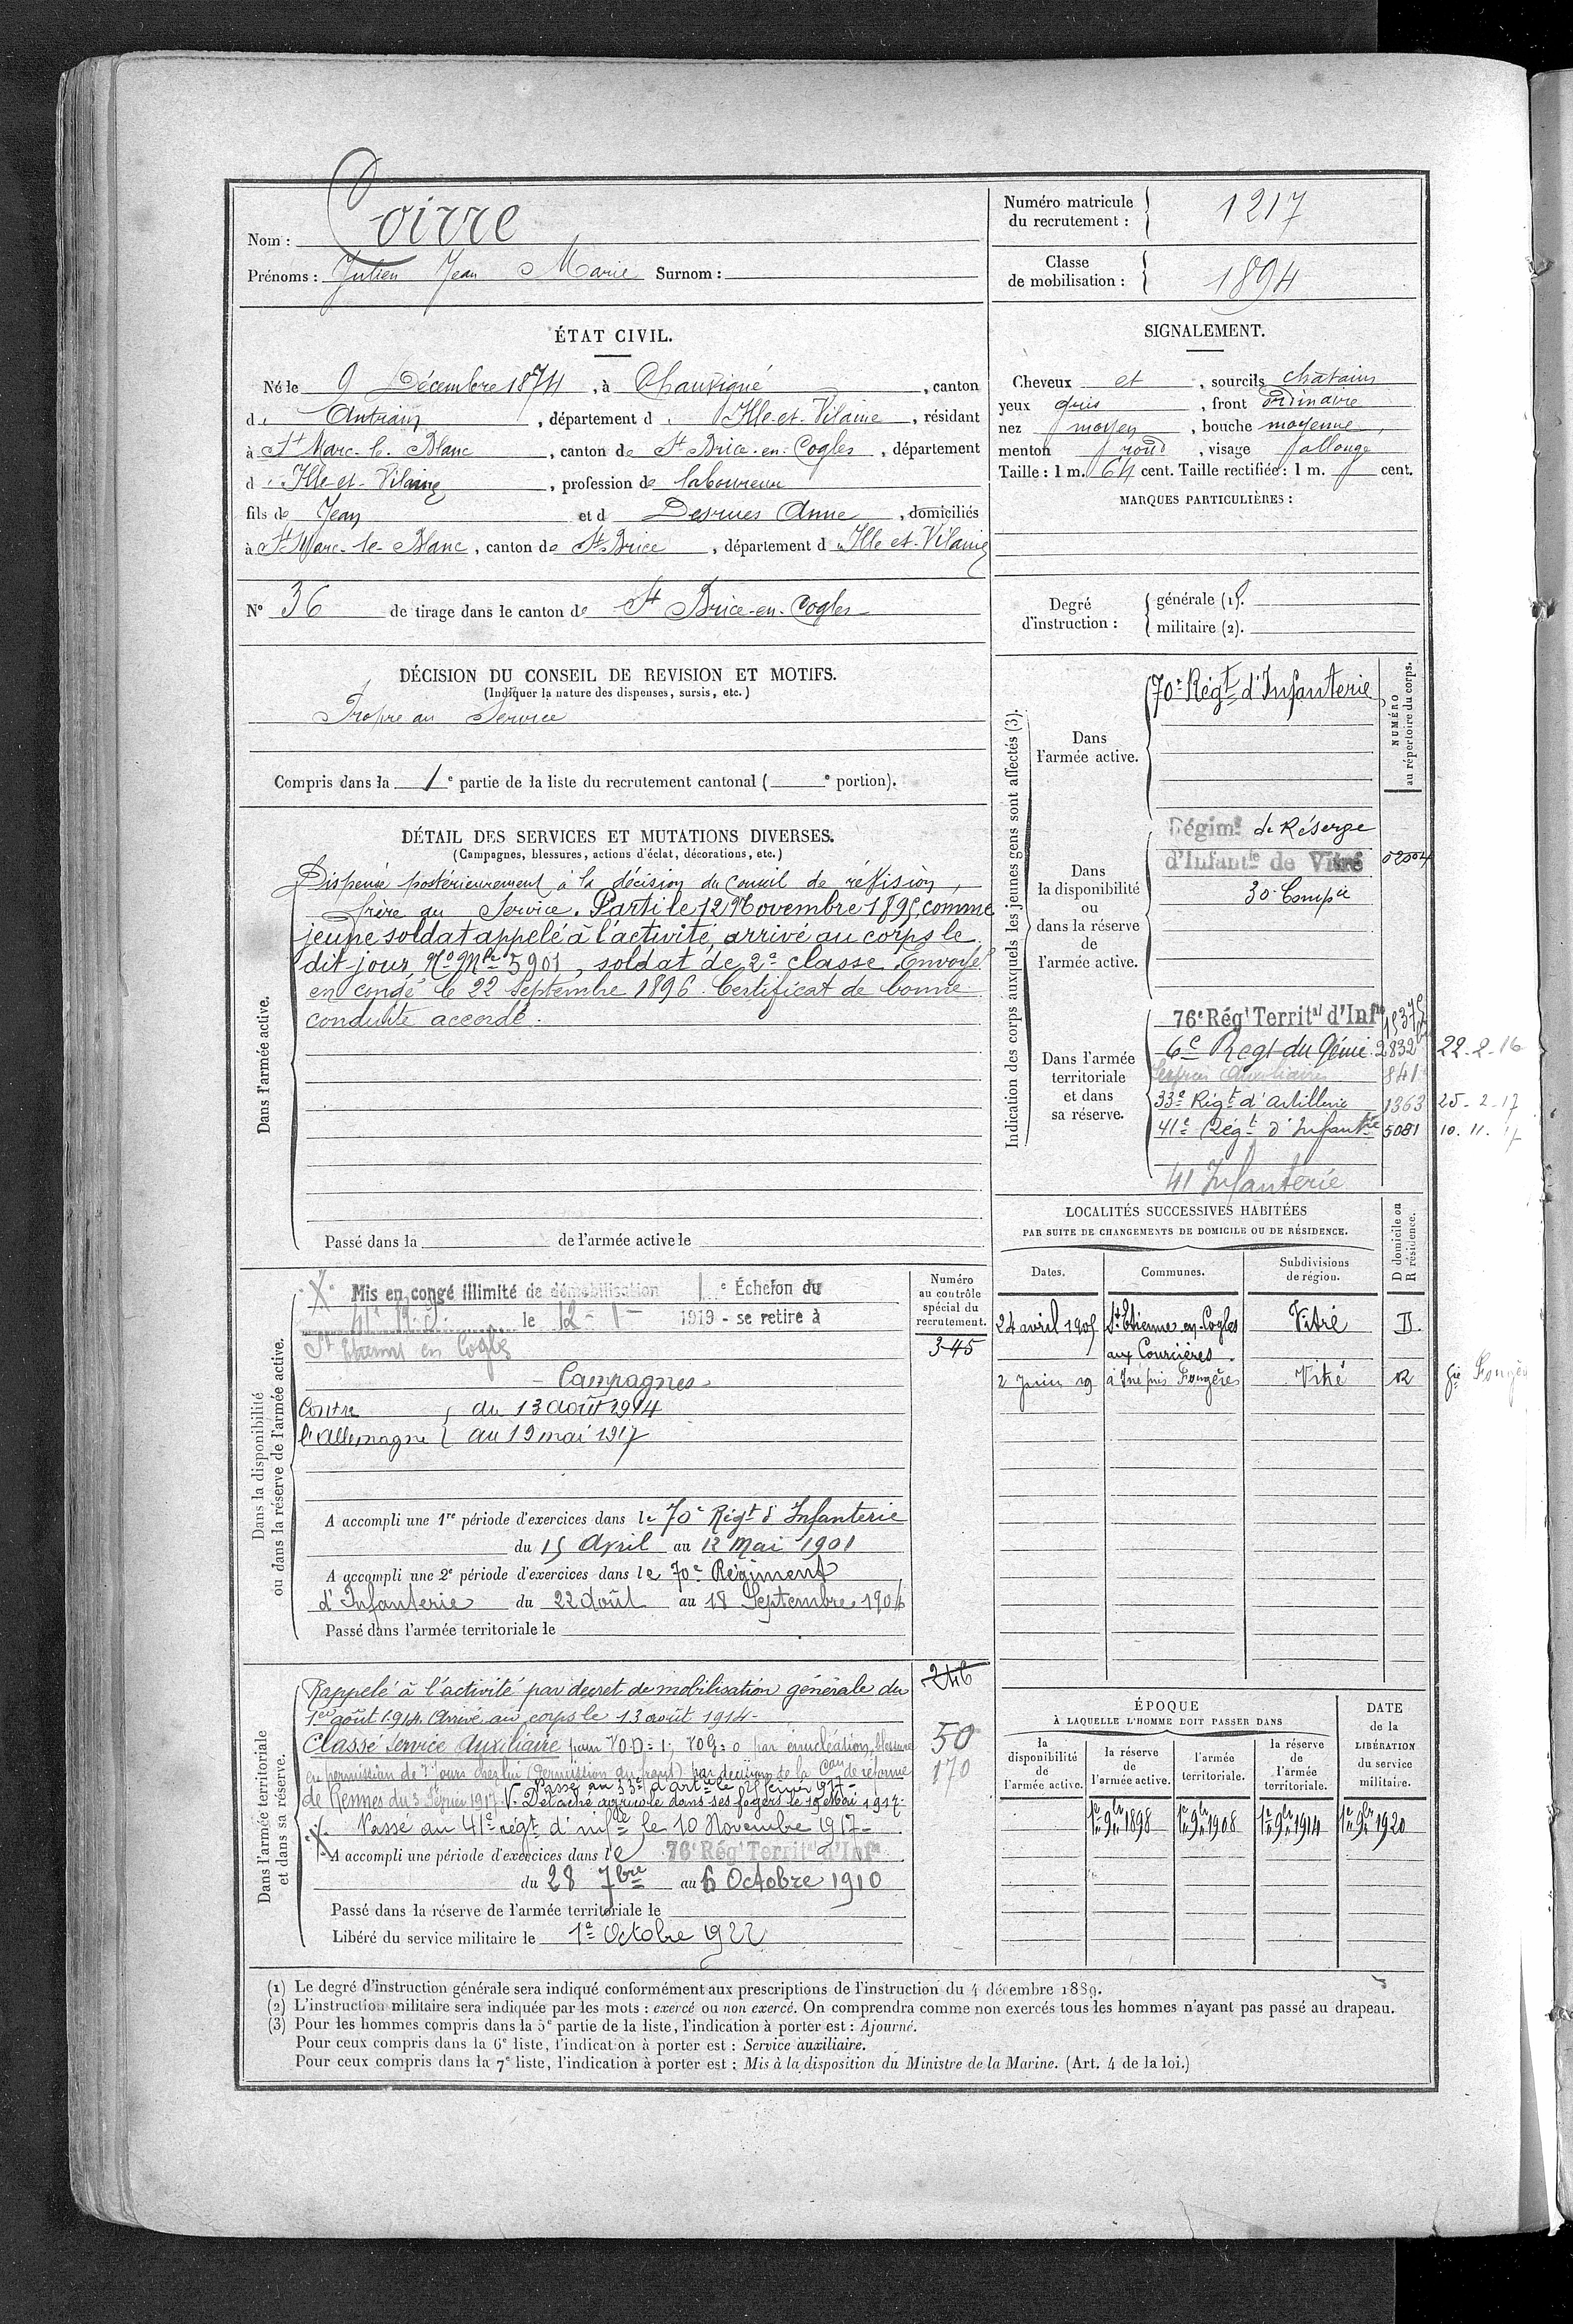 Nom : Coirre
Prénoms : Julien Jean Marie Surnom :
Numéro matricule
du recrutement : 1217
Classe
de mobilisation : 1894
ÉTAT CIVIL.
Né le 9 Décembre 1874, à Chauvigné, canton
d' Antrain, département d' Ille-et-Vilaine, résidant
à St Marc-le-Blanc, canton de St Brice-en-Cogles, département
d' Ille-et-Vilaine, profession de laboureur
fils de Jean et d Desrues Anne, domiciliés
à St Marc-le-Blanc, canton de St Brice, département d' Ille-et-Vilaine
N° 36 de tirage dans le canton de St Brice-en-Cogles
SIGNALEMENT.
Cheveux et, sourcils chatains
yeux gris, front ordinaire
nez moyen, bouche moyenne,
menton rond, visage allongé
Taille : 1 m. 64 cent. Taille rectifiée : 1 m. cent.
MARQUES PARTICULIÈRES :
Degré
d'instruction :
générale (1).
militaire (2).
DÉCISION DU CONSEIL DE REVISION ET MOTIFS.
(Indiquer la nature des dispenses, sursis, etc.)
Propre au Service
Compris dans la 1e partie de la liste du recrutement cantonal ( e portion).
DÉTAIL DES SERVICES ET MUTATIONS DIVERSES.
(Campagnes, blessures, actions d'éclat, décorations, etc.)
Dans l'armée active.
Dispensé postérieurement à la décision du Conseil de révision,
frère au Service. Parti le 12 Novembre 1895, comme
jeune soldat appelé à l'activité, arrivé au corps le
dit jour, No Mle 5901, soldat de 2e classe. Envoyé
en congé le 22 Septembre 1896. Certificat de bonne
conduite accordé.
Passé dans la de l'armée active le
Indication des corps auxquels les jeunes gens sont affectés (3).
NUMÉRO
au répertoire du corps.
Dans
l'armée active.
70e Régt d'Infanterie
Dans
la disponibilité
ou
dans la réserve
de
l'armée active.
Régimt de Réserve
d'Infantie de Vitré 02004
30 Compie
Dans l'armée
territoriale
et dans
sa réserve.
76e Régt Territal d'Infie
6e Regt du Génie 2832 22-2-16
Service Auxiliaire 841
33e Régt d'artillerie 1363 25-2-17
41e Régt d'Infantie 5081 10.11.17
41 Infanterie
LOCALITÉS SUCCESSIVES HABITÉES
PAR SUITE DE CHANGEMENTS DE DOMICILE OU DE RÉSIDENCE.
Dates. Communes. Subdivisions
de région. D domicile ou
R résidence.
24 avril 1905 St Etienne en Cogles Vitré D.
aux Courcières.
2 Juin 19 Vitré R
Dans la disponibilité
ou dans la réserve de l'armée active.
Numéro
au contrôle
spécial du
recrutement.
345
X Mis en congé illimité de démobilisation 1e Échelon du
41e le 12-1- 1919 - se retire à
St Etienne en Cogles
Campagnes
Contre du 13 août 1914
l'Allemagne au 19 mai 1917
A accompli une 1re période d'exercices dans le 70e Régt d'Infanterie
du 15 Avril au 12 Mai 1901
A accompli une 2e période d'exercices dans le 70e Régiment
d'Infanterie du 22 Août au 18 Septembre 1904
Passé dans l'armée territoriale le
Dans l'armée territoriale
et dans sa réserve.
246
50
170
Rappelé à l'activité par décret de mobilisation générale du
1er août 1914. Arrivé au corps le 13 août 1914-
Classé Service Auxiliaire pour VOD=1; VOG=0 par énucléation, blessure
en permission de 7 jours chez lui (Permission du front) par décision de la Con de réforme
Passé au 33e d'artie le 25 février 1917-
de Rennes du 3 Février 1917. V. Détaché agricole dans ses foyers le 19 Mai 1917-
Passé au 41e régt d'infie le 10 Novembre 1917-
X A accompli une période d'exercices dans le 76e Régt Territal d'Infie
du 28 7bre au 6 Octobre 1910
Passé dans la réserve de l'armée territoriale le
Libéré du service militaire le 1e Octobre 1922
ÉPOQUE
À LAQUELLE L'HOMME DOIT PASSER DANS
DATE
de la
LIBÉRATION
du service
militaire.
la
disponibilité
de
l'armée active.
la réserve
de
l'armée active.
l'armée
territoriale.
la réserve
de
l'armée
territoriale.
1er 9bre 1898 1er 9bre 1908 1er 9bre 1914 1er 9bre 1920
(1) Le degré d'instruction générale sera indiqué conformément aux prescriptions de l'instruction du 4 décembre 1889.
(2) L'instruction militaire sera indiquée par les mots : exercé ou non exercé. On comprendra comme non exercés tous les hommes n'ayant pas passé au drapeau.
(3) Pour les hommes compris dans la 5e partie de la liste, l'indication à porter est : Ajourné.
Pour ceux compris dans la 6e liste, l'indication à porter est : Service auxiliaire.
Pour ceux compris dans la 7e liste, l'indication à porter est : Mis à la disposition du Ministre de la Marine. (Art. 4 de la loi.)